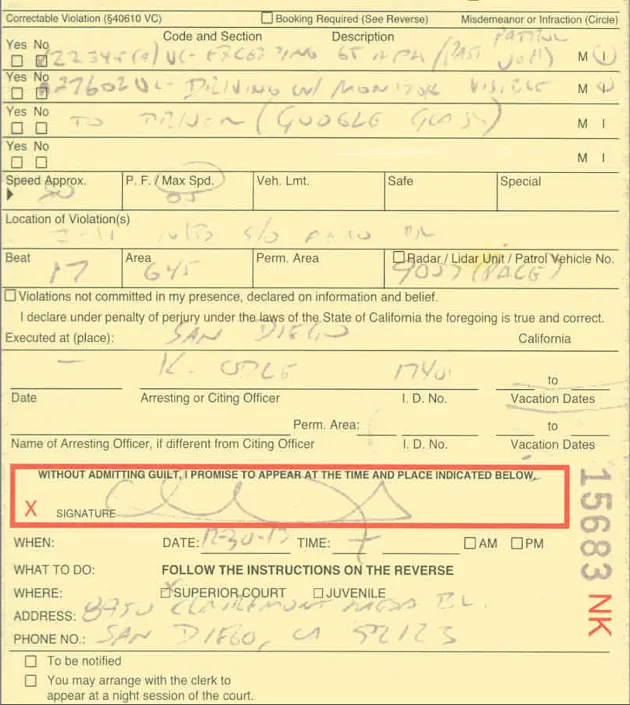 Correctable Violation (§40610 VC) Booking Required (See Reverse) Misdemeanor or Infraction (Circle)
Yes No Code and Section Description PATROL
22349(a) VC- EXCEEDING 65 MPH / (FAST M I
Yes No
27602 VC- DRIVING W/ MONITOR VISIBLE M I
Yes No
TO DRIVER (GOOGLE GLASS) M I
Yes No
M I
Speed Approx. P. F. / Max Spd. Veh. Lmt. Safe Special
80 65
Location of Violation(s)
S/O AERO DR
Beat Area Perm. Area Radar / Lidar Unit / Patrol Vehicle No.
17 645 (PACE)
Violations not committed in my presence, declared on information and belief.
I declare under penalty of perjury under the laws of the State of California the foregoing is true and correct.
Executed at (place): SAN DIEGO California
— K. to
Date Arresting or Citing Officer I. D. No. Vacation Dates
Perm. Area: to
Name of Arresting Officer, if different from Citing Officer I. D. No. Vacation Dates
WITHOUT ADMITTING GUILT, I PROMISE TO APPEAR AT THE TIME AND PLACE INDICATED BELOW.
X SIGNATURE
WHEN: DATE: TIME: AM PM
WHAT TO DO: FOLLOW THE INSTRUCTIONS ON THE REVERSE
WHERE: SUPERIOR COURT JUVENILE
ADDRESS: 8950 CLAIREMONT MESA BL.
PHONE NO.: SAN DIEGO, CA 92123
To be notified
You may arrange with the clerk to
appear at a night session of the court.
15683 NK